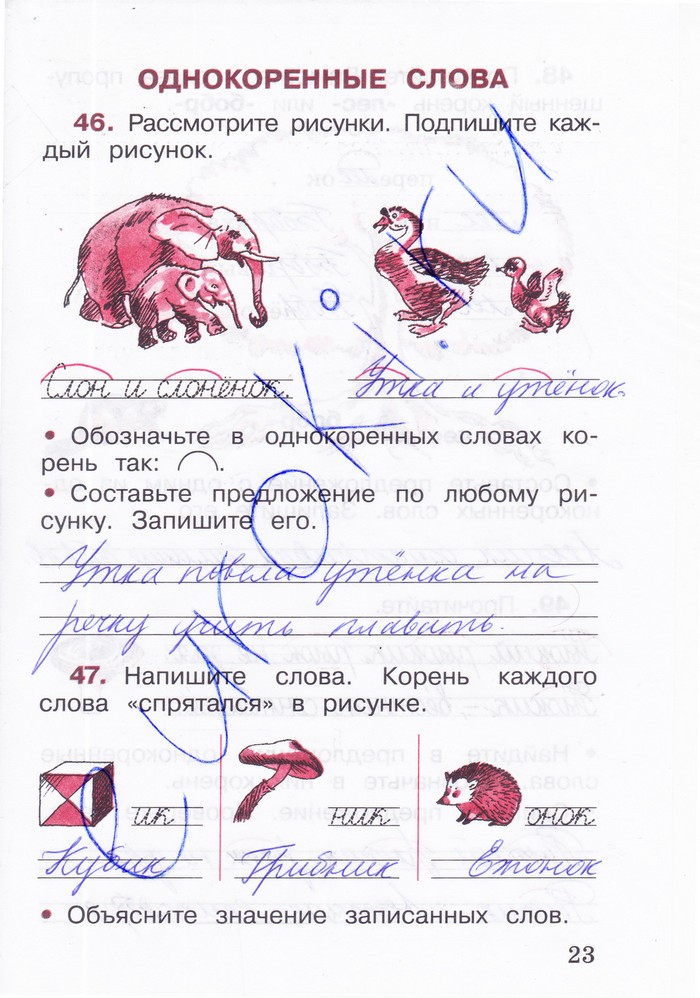 ОДНОКОРЕННЫЕ СЛОВА
46. Рассмотрите рисунки. Подпишите каж-
дый рисунок.
Слон и слонёнок. Утка и утёнок.
• Обозначьте в однокоренных словах ко-
рень так: .
• Составьте предложение по любому ри-
сунку. Запишите его.
Утка повела утёнка на
речку учить плавать.
47. Напишите слова. Корень каждого
слова «спрятался» в рисунке.
ик ник онок
Кубик Грибник Ежонок
• Объясните значение записанных слов.
23